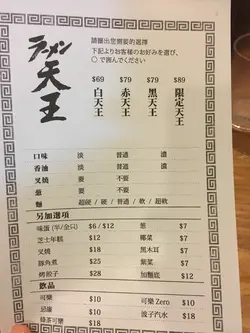 ラーメン
天王
請圈出您需要的選擇
下記よりお客様のお好みを選び、
○で囲んでください
$69 $79 $79 $89
白天王 赤天王 黑天王 限定天王
口味 淡 普通 濃
香油 淡 普通 濃
叉燒 要 不要
蔥 要 不要
麵 超硬 / 硬 / 普通 / 軟 / 超軟
另加選項
味蛋 (半/全只) $6 / $12 蔥 $7
芝士年糕 $12 椰菜 $7
叉燒 $18 黑木耳 $7
豚角煮 $25 紫菜 $7
烤餃子 $28 加麵底 $12
飲品
可樂 $10 可樂 Zero $10
忌廉 $10 波子汽水 $18
綠茶可樂 $18